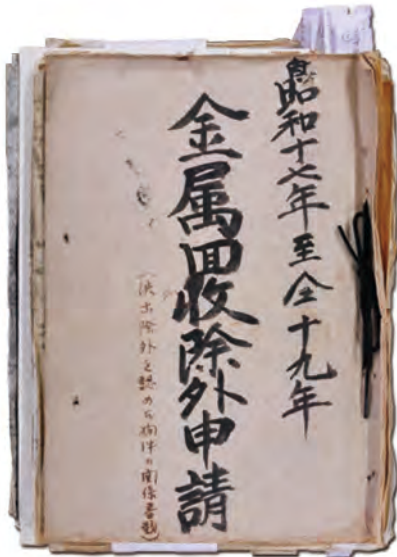 自昭和十七年至仝十九年
金属回收除外申請
(供出除外を認めらる物件の関係書類)